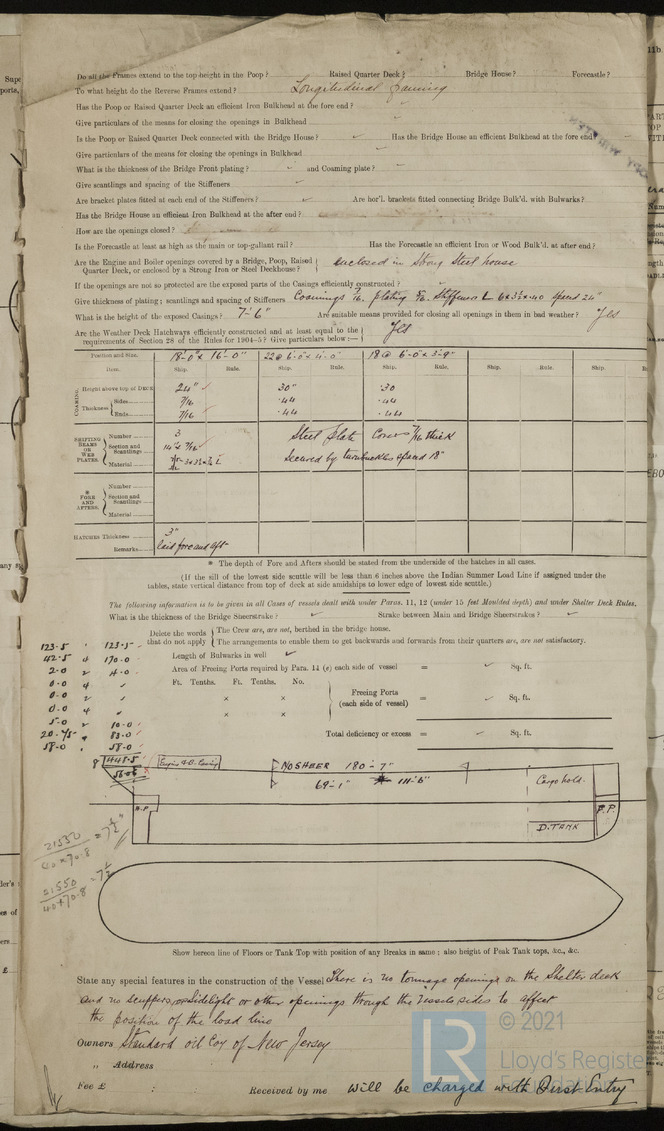 Do all the Frames extend to the top height in the Poop? Raised Quarter Deck? Bridge House? Forecastle?
To what height do the Reverse Frames extend? Longitudinal framing
Has the Poop or Raised Quarter Deck an efficient Iron Bulkhead at the fore end?
Give particulars of the means for closing the openings in Bulkhead
Is the Poop or Raised Quarter Deck connected with the Bridge House? Has the Bridge House an efficient Bulkhead at the fore end?
Give particulars of the means for closing the openings in Bulkhead
What is the thickness of the Bridge Front plating? and Coaming plate?
Give scantlings and spacing of the Stiffeners
Are bracket plates fitted at each end of the Stiffeners? Are hor'l. brackets fitted connecting Bridge Bulk'd. with Bulwarks?
Has the Bridge House an efficient Iron Bulkhead at the after end?
How are the openings closed?
Is the Forecastle at least as high as the main or top-gallant rail? Has the Forecastle an efficient Iron or Wood Bulk'd. at after end?
Are the Engine and Boiler openings covered by a Bridge, Poop, Raised Quarter Deck, or enclosed by a Strong Iron or Steel Deckhouse? enclosed in Strong Steel house
If the openings are not so protected are the exposed parts of the Casings efficiently constructed?
Give thickness of plating; scantlings and spacing of Stiffeners Coamings 7/16. plating 6/16. Stiffeners L 6x3½x.40 spaced 24"
What is the height of the exposed Casings? 7'-6" Are suitable means provided for closing all openings in them in bad weather? Yes
Are the Weather Deck Hatchways efficiently constructed and at least equal to the requirements of Section 28 of the Rules for 1904-5? Give particulars below:— Yes
Position and Size. 18'-0" x 16'-0" 22 @ 6'-0" x 4'-0" 18 @ 6'-0" x 3'-9"
Item. Ship. Rule. Ship. Rule. Ship. Rule. Ship. Rule. Ship.
COAMING Height above top of DECK 24" 30" 30
Thickness Sides 7/16 .44 .44
Ends 7/16 .44 .44
SHIFTING BEAMS OR WEB PLATES. Number 3 Steel plate Covers 7/16 thick
Section and Scantlings
Material secured by turnbuckles spaced 18"
* FORE AND AFTERS. Number
Section and Scantlings
Material
HATCHES Thickness 3"
Remarks laid fore and aft
* The depth of Fore and Afters should be stated from the underside of the hatches in all cases.
(If the sill of the lowest side scuttle will be less than 6 inches above the Indian Summer Load Line if assigned under the
tables, state vertical distance from top of deck at side amidships to lower edge of lowest side scuttle.)
The following information is to be given in all Cases of vessels dealt with under Paras. 11, 12 (under 15 feet Moulded depth) and under Shelter Deck Rules.
What is the thickness of the Bridge Sheerstrake? Strake between Main and Bridge Sheerstrakes?
Delete the words that do not apply The Crew are, are not, berthed in the bridge house.
The arrangements to enable them to get backwards and forwards from their quarters are, are not satisfactory.
123.5 123.5
Length of Bulwarks in well
42.5 4 170.0
Area of Freeing Ports required by Para. 11 (e) each side of vessel = Sq. ft.
2.0 2 4.0
Ft. Tenths. Ft. Tenths. No.
0.0 4
0.0 2
× × Freeing Ports (each side of vessel) = Sq. ft.
0.0 4
× ×
5.0 2 10.0
20.75 4 83.0
Total deficiency or excess = Sq. ft.
58.0 58.0
8 448.5
56.06
Engine & B. Casing
NO SHEER 180'-7"
69'-1" 111'-6"
Cargo hold.
A.P.
F.P.
D. TANK
21550
40+70.8
= 7½
Show hereon line of Floors or Tank Top with position of any Breaks in same; also height of Peak Tank tops, &c., &c.
State any special features in the construction of the Vessel There is no tonnage openings on the Shelter deck
and no scuppers, or sidelight or other openings through the vessels sides to affect
the position of the load line
Owners Standard Oil Coy of New Jersey
" Address
Fee £ : Received by me will be charged with First Entry
LR © 2021
Lloyd's Register
Foundation